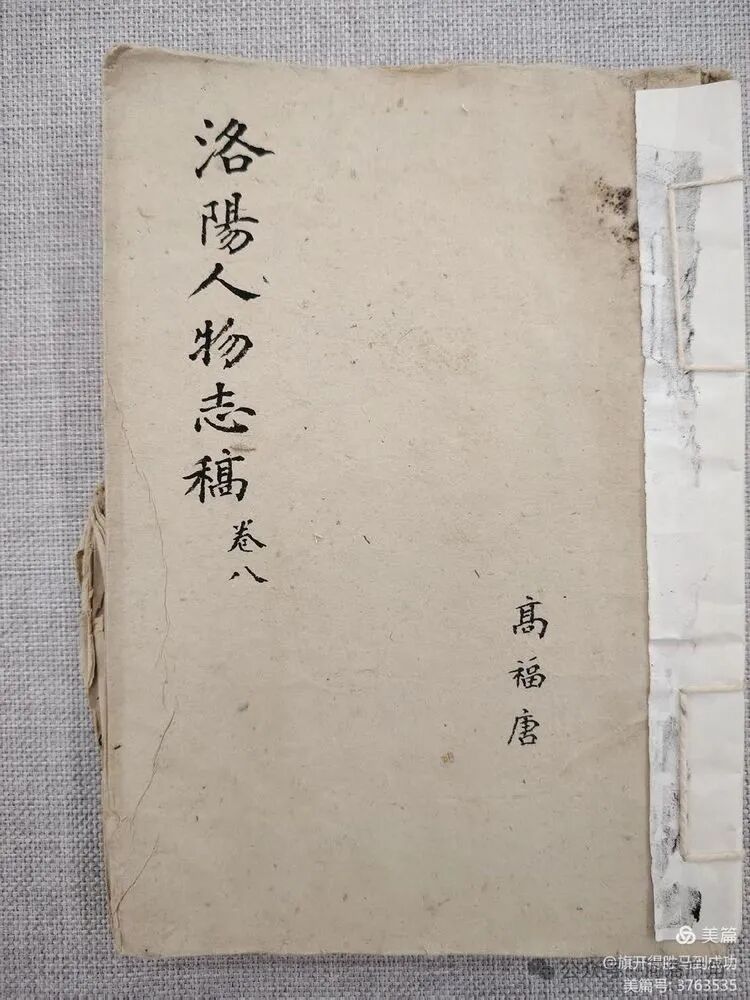 洛陽人物志稿
卷八
高福唐
美篇
@旗开得胜马到成功
美篇号: 3763535